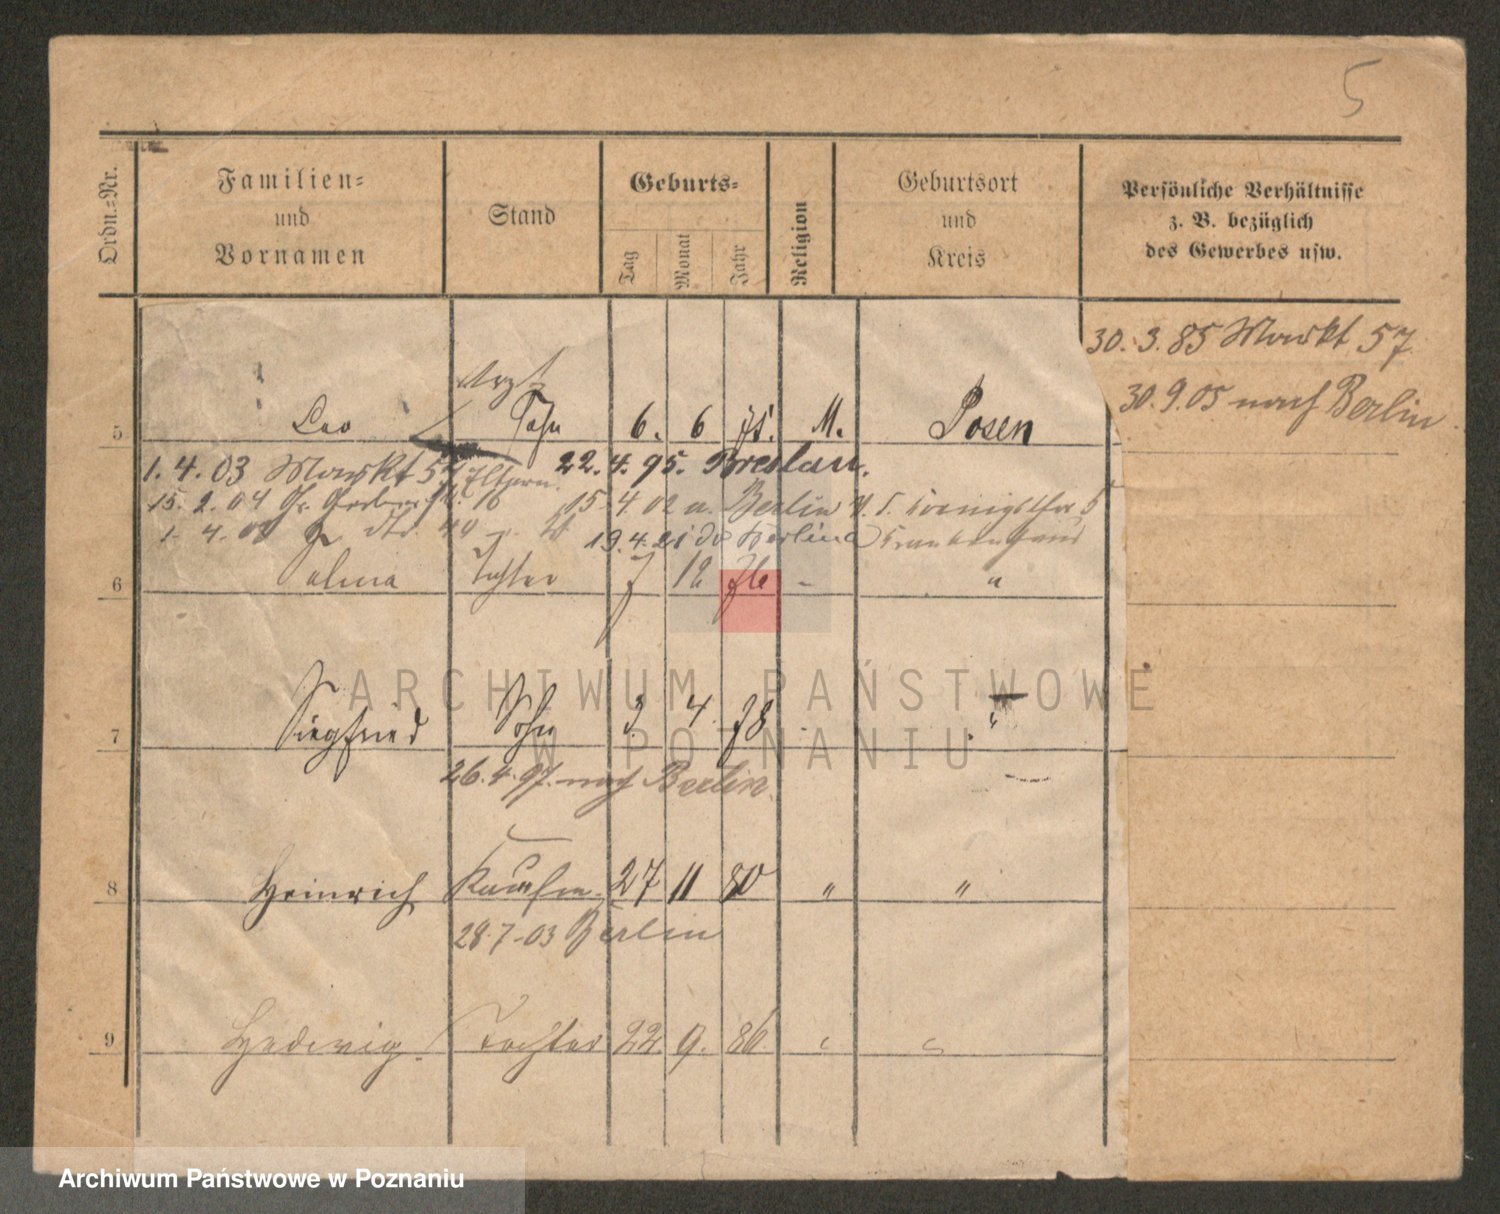 5
Ordn.-Nr.
Familien-
und
Vornamen
Stand
Geburts-
Tag
Monat
Jahr
Religion
Geburtsort
und
Kreis
Persönliche Verhältnisse
z. B. bezüglich
des Gewerbes usw.
30. 3. 85 Markt 57
30. 9. 05 nach Berlin.
Arzt
5 Leo Sohn 6. 6 75. M. Posen
1. 4. 03 Markt 57 Eltern. 22. 4. 95. Breslau.
15. 2. 04 Gr. 16 15. 4. 02 n. Berlin
1. 4. 19. 4. 21 Berlin Krankenhaus
6 Salma Tochter 7 12 76 - "
7 Siegfried Sohn 3. 4. 78 "
26. 4. 97. nach Berlin.
8 Heinrich Kaufm. 27 11 80 " "
28. 7 - 03 Berlin
9 Hedwig. Tochter 22. 9. 86 " "
ARCHIWUM PAŃSTWOWE
W POZNANIU
Archiwum Państwowe w Poznaniu